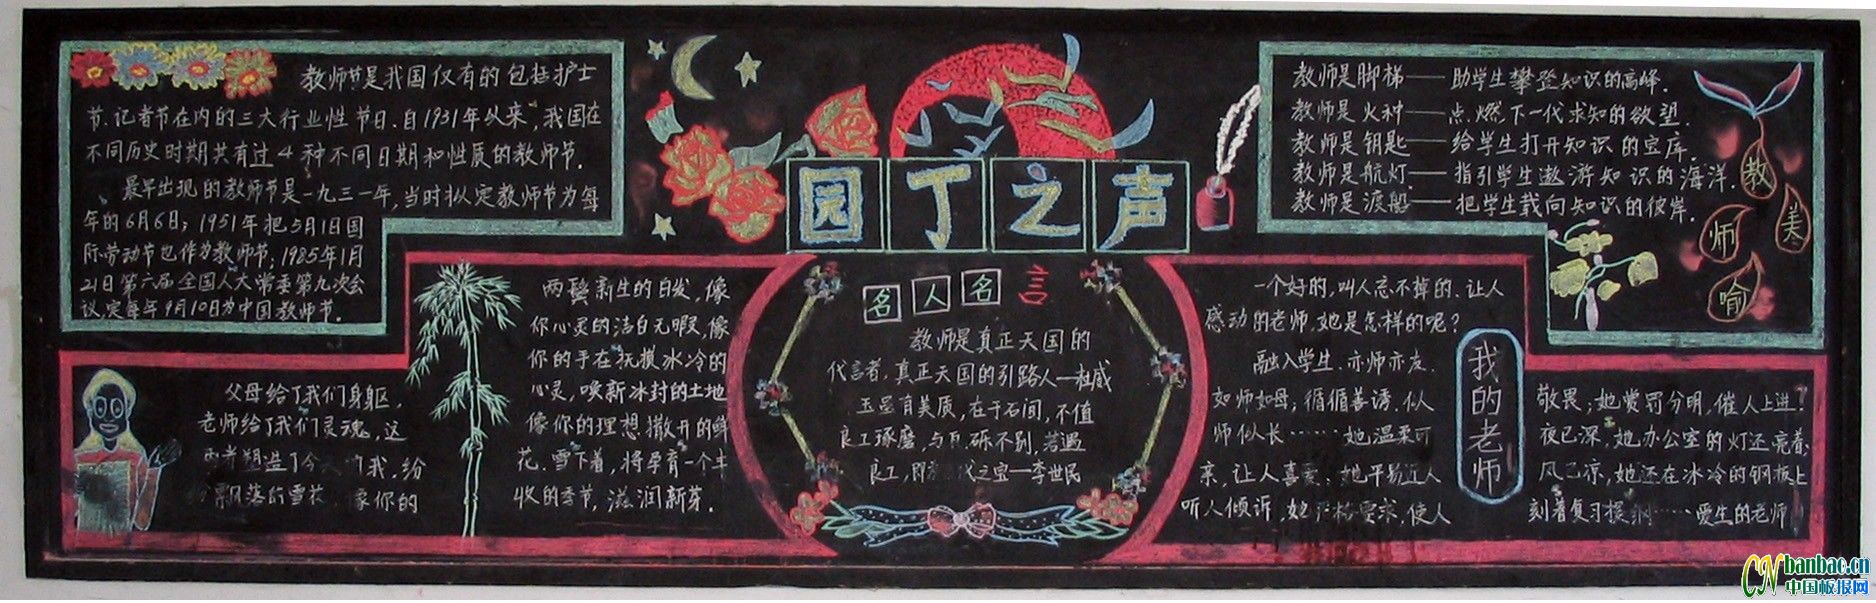 教师节是我国仅有的包括护士
节、记者节在内的三大行业性节日。自1931年以来,我国在
不同历史时期共有过4种不同日期和性质的教师节。
最早出现的教师节是一九三一年,当时拟定教师节为每
年的6月6日;1951年把5月1日国
际劳动节也作为教师节;1985年1月
21日第六届全国人大常委第九次会
议,定每年9月10日为中国教师节。
园丁之声
教师是脚梯——助学生攀登知识的高峰.
教师是火种——点燃下一代求知的欲望.
教师是钥匙——给学生打开知识的宝库.
教师是航灯——指引学生遨游知识的海洋.
教师是渡船——把学生载向知识的彼岸.
教
师
美
喻
父母给了我们身躯,
老师给了我们灵魂,这
两者塑造了今天的我,纷
飘落的雪花 像你的
两鬓新生的白发,像
你心灵的洁白无暇,像
你的手在抚摸冰冷的
心灵,唤新冰封的土地
像你的理想撒开的鲜
花.雪下着,将孕育一个丰
收的季节,滋润新芽.
名人名言
教师是真正天国的
代言者,真正天国的引路人—杜威
玉虽有美质,在于石间,不值
良工琢磨,与瓦砾不别,若遇
良工,即 代之宝—李世民
一个好的,叫人忘不掉的、让人
感动的老师,她是怎样的呢?
融入学生.亦师亦友.
如师如母;循循善诱.似人
师似长……她温柔可
亲,让人喜爱;她平易近人
听人倾诉,她严格要求,使人
我的老师
敬畏;她赏罚分明,催人上进.
夜已深,她办公室的灯还亮着;
风已凉,她还在冰冷的钢板上
刻着复习提纲……爱生的老师
CN banbao.cn
中国板报网